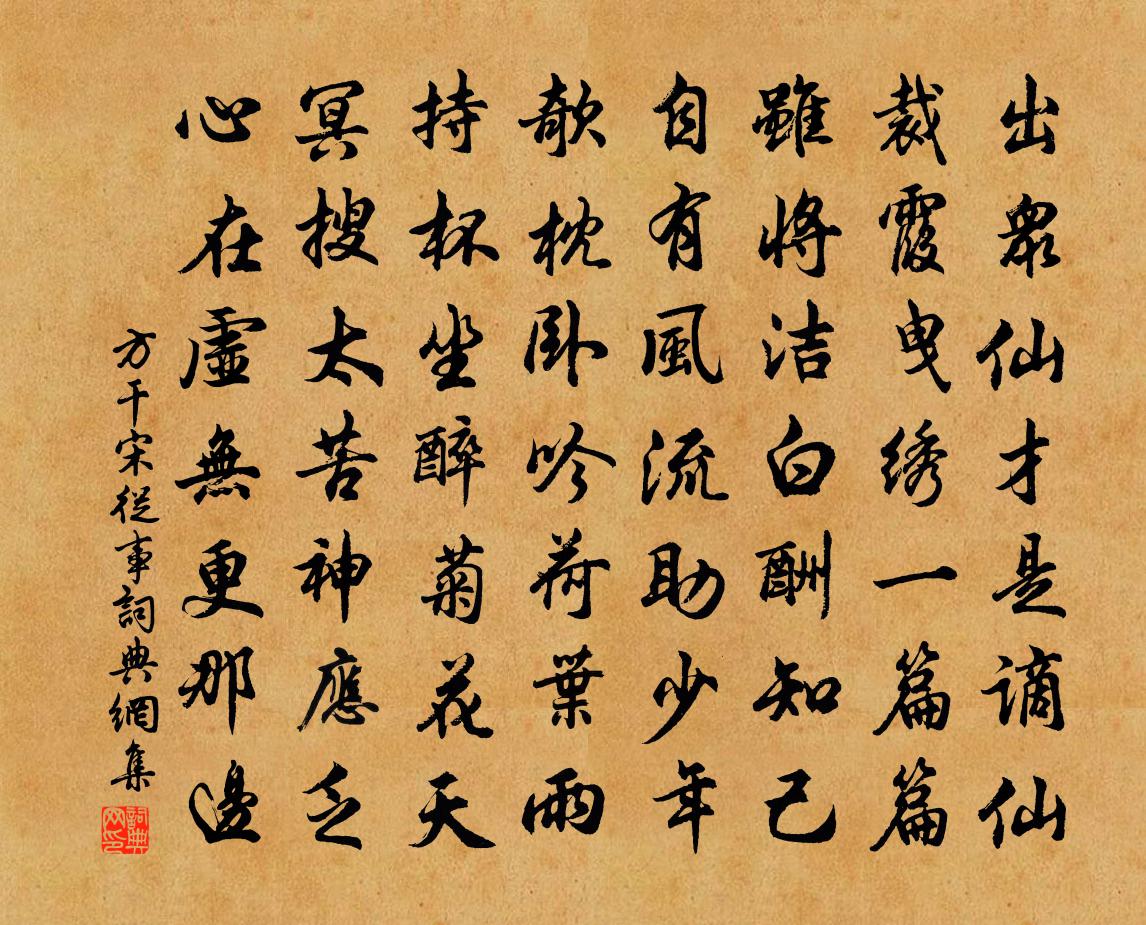 出衆仙才是謫仙
裁霞曳绣一篇篇
雖將洁白酬知己
自有風流助少年
欹枕卧吟荷葉雨
持杯坐醉菊花天
冥搜太苦神應乏
心在虛無更那邊
方干宋從事詞典網集
詞典网印